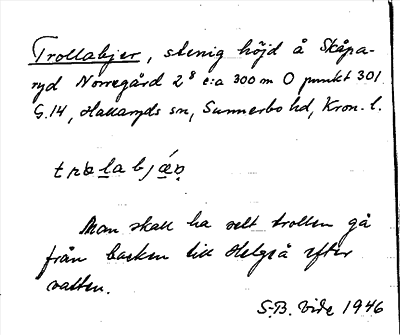 Trollabjer, stenig höjd å Skåpa-
ryd Norregård 2⁸ c:a 300 m O punkt 301
G.14, Hallaryds sn, Sunnerbo hd, Kron. l.
Man skall ha sett trollen gå
från backen till Helgeå efter
vatten.
S-B. Vide 1946